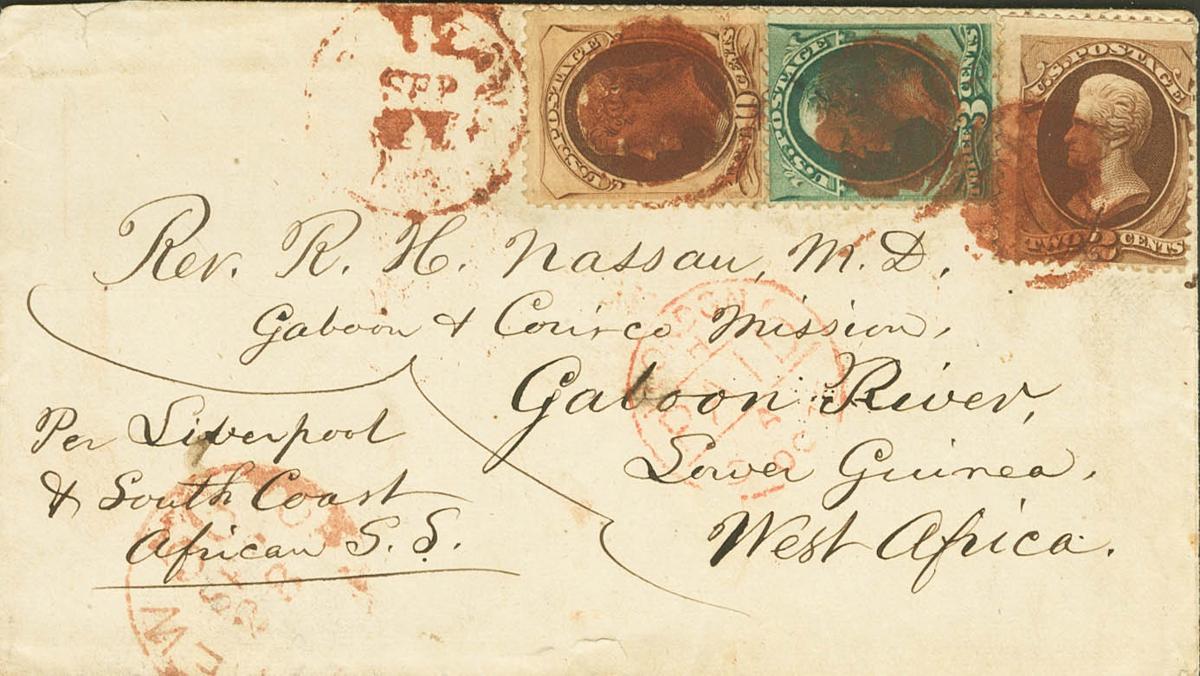 SEP
U.S. POSTAGE
U.S. POSTAGE
3 CENTS
U.S. POSTAGE
TWO 2 CENTS
Rev. R. H. Nassau, M.D.
Gaboon & Corisco Mission,
Gaboon River,
Lower Guinea,
West Africa.
Per Liverpool
& South Coast
African S.S.